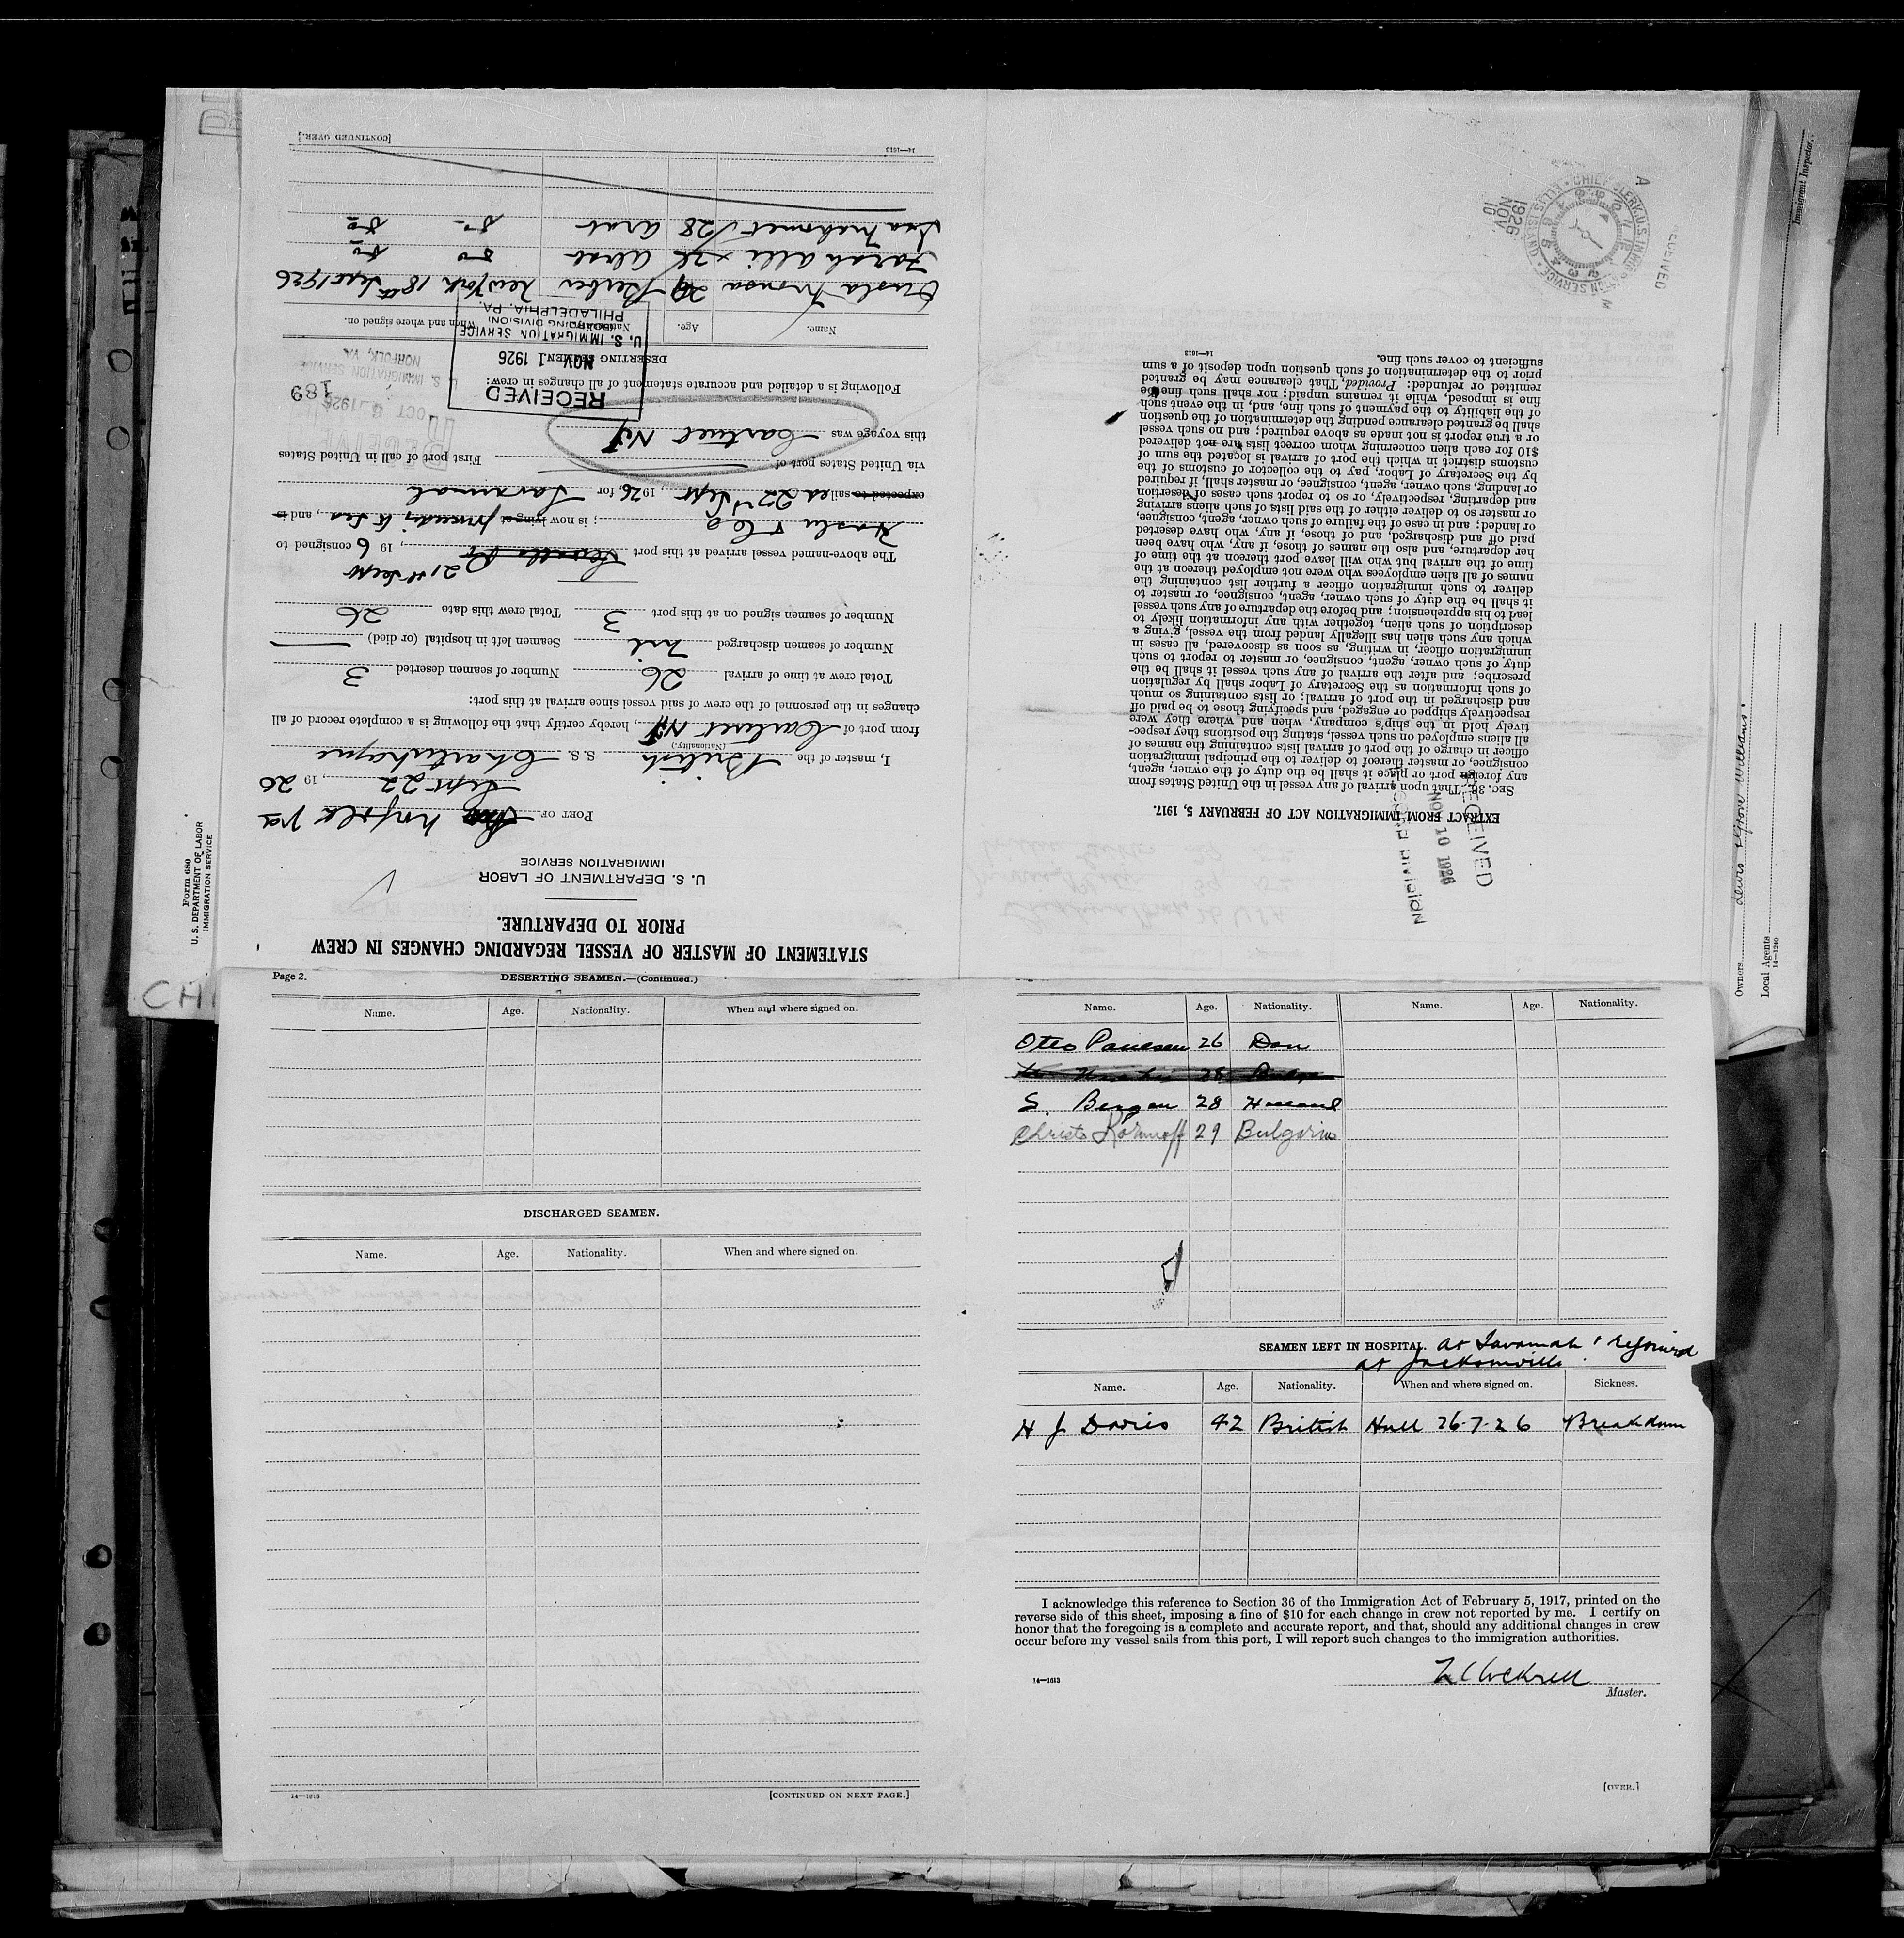 Form 680
U. S. DEPARTMENT OF LABOR
IMMIGRATION SERVICE
STATEMENT OF MASTER OF VESSEL REGARDING CHANGES IN CREW
PRIOR TO DEPARTURE.
U. S. DEPARTMENT OF LABOR
IMMIGRATION SERVICE
PORT OF Norfolk Va
Sept 22, 19 26
I, master of the British S. S.
(Nationality.)
from port of Carteret NJ, hereby certify that the following is a complete record of all
changes in the personnel of the crew of said vessel since arrival at this port:
Total crew at time of arrival 26 Number of seamen deserted 3
Number of seamen discharged Nil. Seamen left in hospital (or died)
Number of seamen signed on at this port 3 Total crew this date 26
21st Sept
The above-named vessel arrived at this port, 19 6 consigned to
Hasler & Co; is now lying at proceeding to Sea, and is
expected to sail ed 22nd Sept, 1926, for Savannah
via United States port of First port of call in United States
this voyage was Carteret NJ
Following is a detailed and accurate statement of all changes in crew:
DESERTING SEAMEN
Name. Age. Nationality. When and where signed on.
Musa 29 Berber New York 18th Sept 1926
Farah Alli 26 Arab do do
Mahomet 28 Arab do do
14—1613
[CONTINUED OVER.]
RECEIVED
NOV 1 1926
U. S. IMMIGRATION SERVICE
BOARDING DIVISION,
PHILADELPHIA, PA.
RECEIVE
OCT 6 1926
U. S. IMMIGRATION SERVICE
NORFOLK, VA.
189
EXTRACT FROM IMMIGRATION ACT OF FEBRUARY 5, 1917.
SEC. 36. That upon arrival of any vessel in the United States from
any foreign port or place it shall be the duty of the owner, agent,
consignee, or master thereof to deliver to the principal immigration
officer in charge of the port of arrival lists containing the names of
all aliens employed on such vessel, stating the positions they respec-
tively hold in the ship's company, when and where they were
respectively shipped or engaged, and specifying those to be paid off
and discharged in the port of arrival; or lists containing so much
of such information as the Secretary of Labor shall by regulation
prescribe; and after the arrival of any such vessel it shall be the
duty of such owner, agent, consignee, or master to report to such
immigration officer, in writing, as soon as discovered, all cases in
which any such alien has illegally landed from the vessel, giving a
description of such alien, together with any information likely to
lead to his apprehension; and before the departure of any such vessel
it shall be the duty of such owner, agent, consignee, or master to
deliver to such immigration officer a further list containing the
names of all alien employees who were not employed thereon at the
time of the arrival but who will leave port thereon at the time of
her departure, and also the names of those, if any, who have been
paid off and discharged, and of those, if any, who have deserted
or landed; and in case of the failure of such owner, agent, consignee,
or master so to deliver either of the said lists of such aliens arriving
and departing, respectively, or so to report such cases of desertion
or landing, such owner, agent, consignee, or master, shall, if required
by the Secretary of Labor, pay to the collector of customs of the
customs district in which the port of arrival is located the sum of
$10 for each alien concerning whom correct lists are not delivered
or a true report is not made as above required; and no such vessel
shall be granted clearance pending the determination of the question
of the liability to the payment of such fine, and, in the event such
fine is imposed, while it remains unpaid; nor shall such fine be
remitted or refunded: Provided, That clearance may be granted
prior to the determination of such question upon deposit of a sum
sufficient to cover such fine.
14—1613
RECEIVED
NOV 10 1926
RECORD DIVISION
RECEIVED
1926
NOV.
10
Immigrant Inspector.
Owners
Local Agents
14—1240
Page 2. DESERTING SEAMEN.—(Continued.)
Name. Age. Nationality. When and where signed on.
DISCHARGED SEAMEN.
Name. Age. Nationality. When and where signed on.
14—1613 [CONTINUED ON NEXT PAGE.]
Name. Age. Nationality. Name. Age. Nationality.
Otto 26 Dan
S. Bergen 28 Holland
Christo 29 Bulgaria
SEAMEN LEFT IN HOSPITAL. at Savannah & rejoined
at Jacksonville
Name. Age. Nationality. When and where signed on. Sickness.
H J Davies 42 British Hull 26-7-26 Breakdown
I acknowledge this reference to Section 36 of the Immigration Act of February 5, 1917, printed on the
reverse side of this sheet, imposing a fine of $10 for each change in crew not reported by me. I certify on
honor that the foregoing is a complete and accurate report, and that, should any additional changes in crew
occur before my vessel sails from this port, I will report such changes to the immigration authorities.
14—1613
Master.
[OVER.]